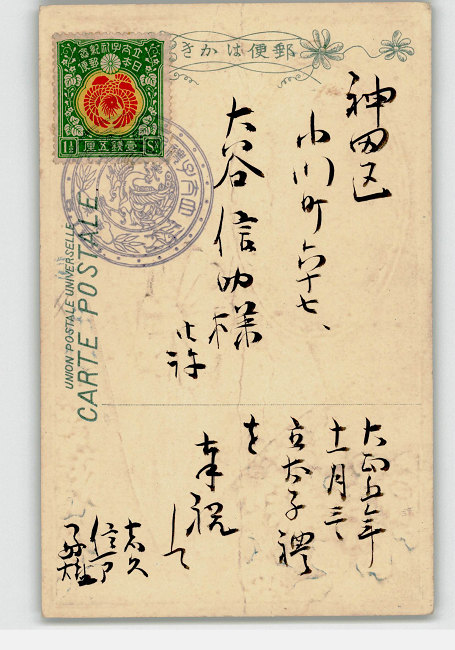 郵便はかき
神田区
小川町六十七、
大谷信助様
大正五年
十一月三
立太子禮
を
奉祝
して
UNION POSTALE UNIVERSELLE
CARTE POSTALE
大日本
郵便
壹錢五厘
1½ Sn